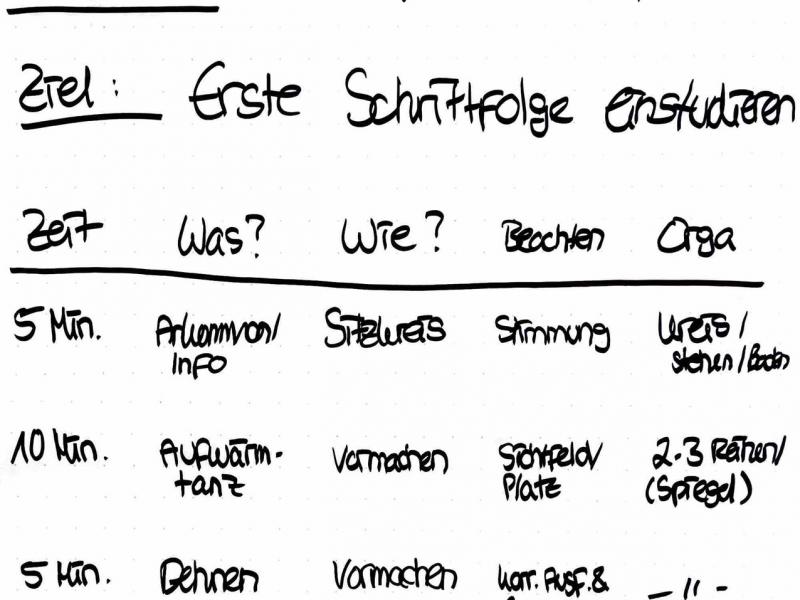 Ziel: Erste Schrittfolge einstudieren
Zeit Was? Wie? Beachten Orga
5 Min. Ankommen/ Sitzkreis Stimmung Kreis/
Info stehen/Boden
10 Min. Aufwärm- Vormachen Sichtfeld/ 2-3 Reihen/
tanz Platz (Spiegel)
5 Min. Dehnen Vormachen korr. Ausf. & — " -